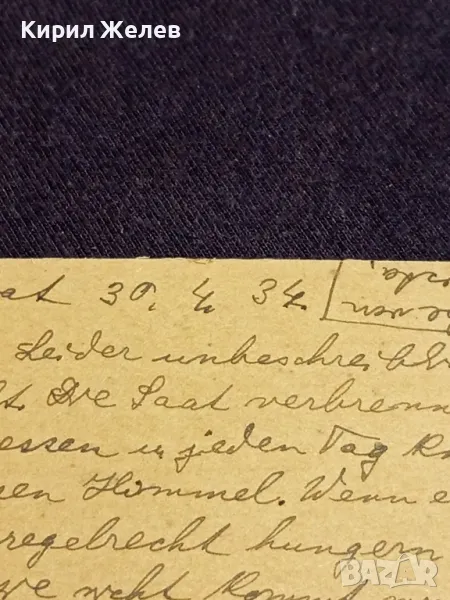 Кирил Желев
at 30. 4. 34.
Leider unbeschreibl
t. Die Saat verbrenn
essen u jeden Tag
en Himmel. Wenn e
regelrecht hungern
we weht kommt
bazar